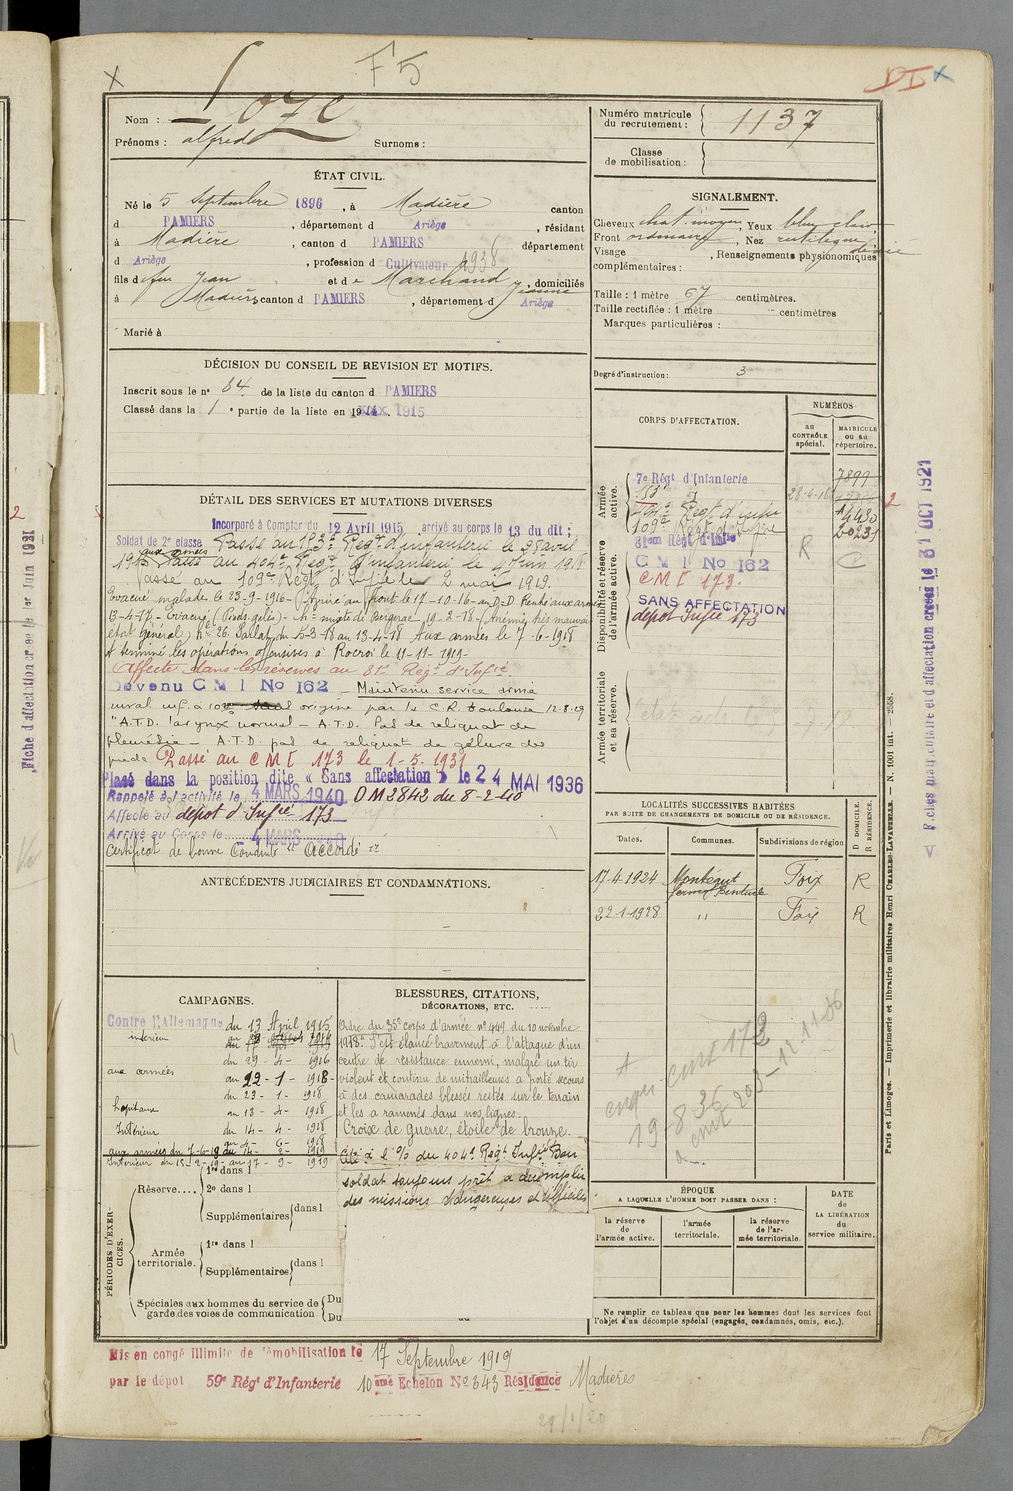 F5
Nom :
Prénoms : alfred Surnoms :
ÉTAT CIVIL.
Né le 5 Septembre 1896, à Madière canton
d PAMIERS, département d Ariège, résidant
à Madière, canton d PAMIERS département
d Ariège, profession d Cultivateur 1938
fils de feu Jean et de Marchand Jeanne, domiciliés
à Madière canton d PAMIERS, département d Ariège
Marié à
DÉCISION DU CONSEIL DE REVISION ET MOTIFS.
Inscrit sous le n° 84 de la liste du canton d PAMIERS
Classé dans la 1e partie de la liste en 1915
DÉTAIL DES SERVICES ET MUTATIONS DIVERSES
Incorporé à Compter du 12 Avril 1915 arrivé au corps le 13 du dit ;
Soldat de 2e classe Passé au 153e Regt d'infanterie le 28 avril
1916 aux armées Passé au 404e Regt d'infanterie le 4 Juin 1918
Passé au 109e Regt d'Infie le 2 mai 1919.
Evacué malades le 23-9-1916 - Arrivé au front le 17-10-16 - au D-D Rentré aux armées
13-4-17 - Evacué (Pieds gelés) - H= mixte de Bergerac 19-2-18 - Anémie, très mauvais
état général) He 26 Sallaty du 15-3-18 au 13-4-18 Aux armées le 7-6-1918
A terminé les opérations offensives à Rocroi le 11-11-1919-
Affecté dans les réserves au 81e Regt d'Infie
Devenu C M I No 162 - Maintenu service armé
inval. inf. à 10% origine par la C.R. Toulouse 12-8-29
"A.T.D. larynx normal - A.T.D. Pas de reliquat de
pleurésie - A.T.D. pas de reliquat de gelure des
pieds Passé au C M I 173 le 1-5-1931
Placé dans la position dite « Sans affectation » le 24 MAI 1936
Rappelé à l'activité le 4 MARS 1940 DM 2842 du 8-2-40
Affecté au dépot d'Infie 173
Arrivé au Corps le 4 MARS 1940
Certificat de bonne Conduite "accordé"
ANTÉCÉDENTS JUDICIAIRES ET CONDAMNATIONS.
CAMPAGNES.
Contre l'Allemagne du 13 Avril 1915
intérieur
du 29 - 4 - 1916
aux armées au 22 - 1 - 1918 -
du 23 - 1 - 1918
hopitaux au 13 - 4 - 1918
Intérieur du 14 - 4 - 1918
au 6 - 6 - 1918
aux armées du 7-6-18 au 14 - 2 - 1919
Intérieur du 15-2-19 - au 17 - 9 - 1919
BLESSURES, CITATIONS,
DÉCORATIONS, ETC.
Ordre du 35e corps d'armée n° 449 du 10 novembre
1918 : S'est élancé bravement à l'attaque d'un
centre de résistance ennemi, malgré un tir
violent et continu de mitrailleuses a porté secours
à des camarades blessés restés sur le terrain
et les a ramenés dans nos lignes.
Croix de guerre, étoile de bronze.
Cité à l'O/ du 404e Regt Infie Bon
soldat toujours prêt à accomplir
des missions dangereuses et difficiles
PÉRIODES D'EXERCICES.
Réserve.... 1re dans l
2e dans l
Supplémentaires dans l
Armée territoriale. 1re dans l
Supplémentaires dans l
Spéciales aux hommes du service de garde des voies de communication Du
Du
Mis en congé illimité de démobilisation le 17 Septembre 1919
par le dépôt 59e Régt d'Infanterie 10ème Echelon No 343 Résidence Madières
29/1/20
Numéro matricule du recrutement : 1137
Classe de mobilisation :
SIGNALEMENT.
Cheveux chat. moyen, Yeux bleu clair
Front ordinaire, Nez rectiligne
Visage , Renseignements physionomiques
complémentaires :
Taille : 1 mètre 67 centimètres.
Taille rectifiée : 1 mètre centimètres
Marques particulières :
Degré d'instruction : 3
CORPS D'AFFECTATION.
NUMÉROS
au CONTRÔLE spécial.
MATRICULE ou au répertoire.
Armée active.
7e Régt d'Infanterie 7899
153e 28-4-16
404e Regt d'Infie
109e Regt d'Infie
81eme Regt d'Infie
Disponibilité et réserve de l'armée active.
C M I No 162 R
C M I 173.
SANS AFFECTATION
dépot Infie 173
Armée territoriale et sa réserve.
LOCALITÉS SUCCESSIVES HABITÉES
PAR SUITE DE CHANGEMENTS DE DOMICILE OU DE RÉSIDENCE.
Dates. Communes. Subdivisions de région D DOMICILE. R RÉSIDENCE.
17-4-1924 Montegut Foix R
22-1-1928 " Foix R
173
19-8-36
ÉPOQUE
A LAQUELLE L'HOMME DOIT PASSER DANS :
la réserve de l'armée active.
l'armée territoriale.
la réserve de l'armée territoriale.
DATE DE LA LIBÉRATION du service militaire.
Ne remplir ce tableau que pour les hommes dont les services font
l'objet d'un décompte spécial (engagés, condamnés, omis, etc.).
Paris et Limoges. — Imprimerie et librairie militaires Henri CHARLES-LAVAUZELLE. — N. 1001 int. — 2558.
Fiches matriculaire et d'affectation créées le 31 OCT 1921
Fiche d'affectation créée le 1er Juin 1931